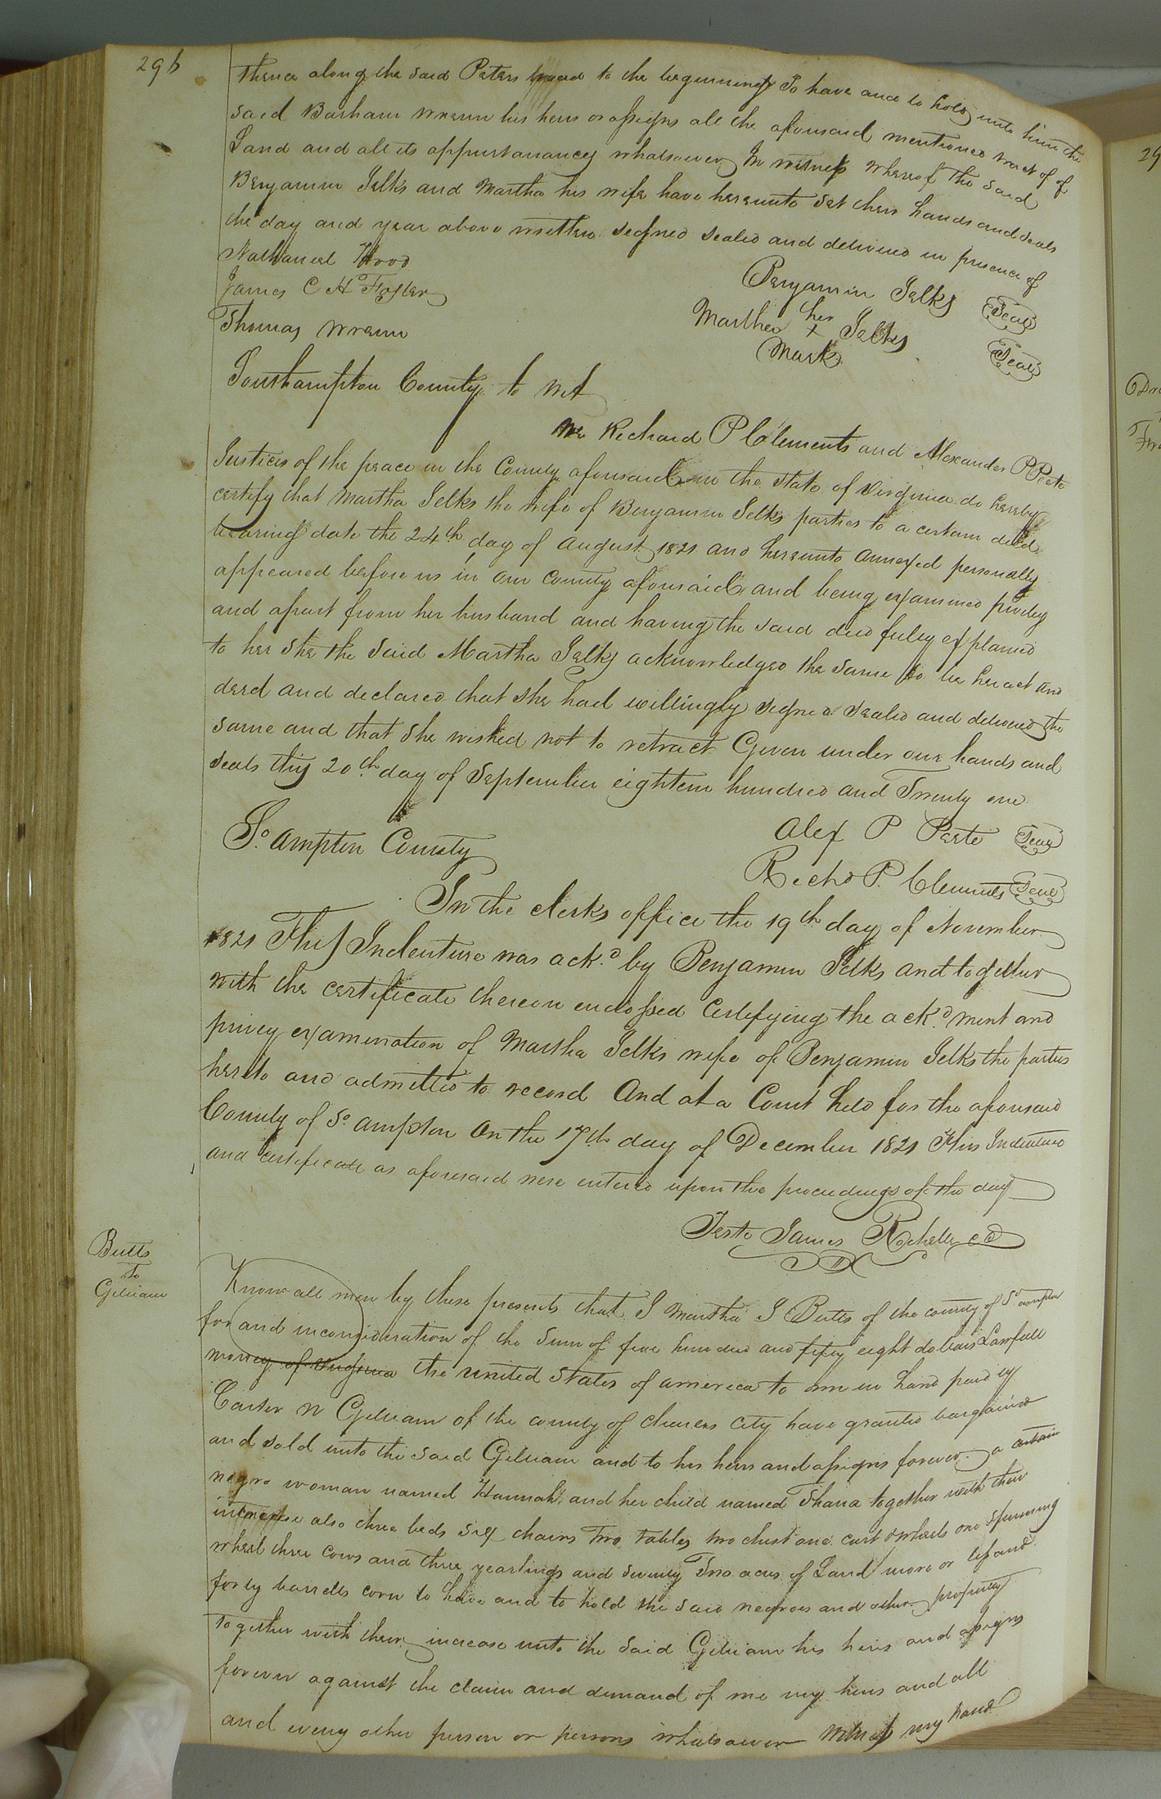 296
thence along the said Peters road to the beginning To have and to hold unto him the
said Barham Wrenn his heirs or assigns all the aforesaid mentioned tract of
Land and all its appurtanances whatsoever In witness whereof the said
Benjamin Jelks and Martha his wife have hereunto set their hands and seals
the day and year above written signed sealed and delivered in presence of
Nathaniel Hood
James C H Foster
Thomas Wrenn
Benjamin Jelks Seal
Martha her x mark Jelks Seal
Southampton County to wit
We Richard P Clements and Alexander P Peete
Justices of the peace in the County aforesaid in the state of Virginia do hereby
certify that Martha Jelks the wife of Benjamin Jelks parties to a certain deed
bearing date the 24th day of August 1821 and hereunto annexed personally
appeared before us in our county aforesaid and being examined privley
and apart from her husband and having the said deed fuley explained
to her she the said Martha Jelks acknowledged the same to be her act and
deed and declared that she had willingly signed sealed and delivered the
same and that she wished not to retract Given under our hands and
seals this 20th day of September eighteen hundred and Twenty one
Alex P Peete Seal
Richd P. Clements Seal
So. ampton County
In the clerks office the 19th day of November
1821 This Indenture was ackd by Benjamin Jelks and together
with the certificate thereon endossed certifying the ackdment and
privey examination of Martha Jelks wife of Benjamin Jelks the parties
hereto and admitted to record And at a Court held for the aforesaid
County of So ampton on the 17th day of December 1821 This Indenture
and certificate as aforesaid were entered upon the proceedings of the day
Teste James Rochelle CC
Butts
To
Gilliam
Know all men by these presents that I Martha I Butts of the county of So ampton
for and inconsideration of the sum of five hundred and fifty eight dollars Lawfull
money of Virginia the united States of america to me in hand paid by
Carter W Gilliam of the county of Charles City have granted bargained
and sold unto the said Gilliam and to his heirs and assigns forever a certain
negro woman named Hannah and her child named Thana together with their
increase also three beds six chairs Two tables two chest one cart & wheels one spinning
wheel three cows and three yearlings and seventy Two acres of Land more or less and
forty barrells corn to have and to hold the said negroes and other property
together with their increase unto the said Gilliam his heirs and assigns
forever against the claim and demand of me my heirs and all
and every other person or persons whatsoever witness my hand